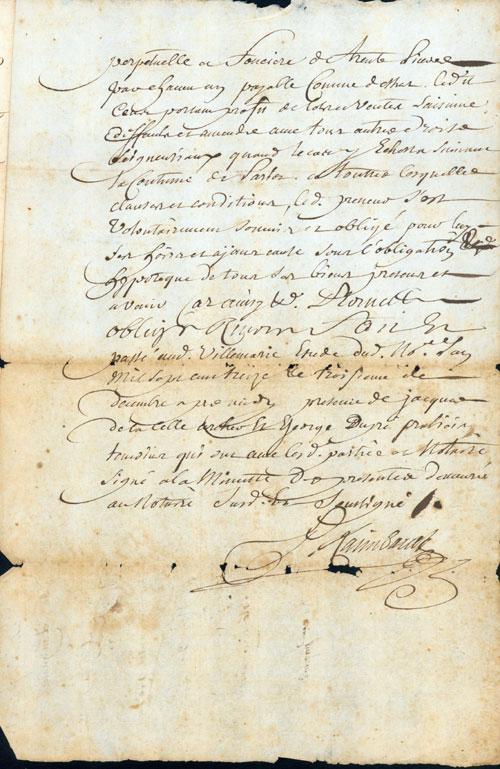 perpetuelle et fonciere de trente livres
par chacun an payable Comme dessus. led't
Cens portant profit de lots et ventes saisinne
deffauts et amende avec tous autres droits
seigneuriaux quand le cas y Echera suivant
la Coutume de Paris. a toutes lesquelles
clauses et conditions led. preneur s'est
Volontairement soumis et obligé pour luy
ses hoirs et ayans cause sous l'obligation
hypoteque de tous ses biens presens et
a venir Car ainsy &c. Promett
obligt &c. Renon Fait Et
passé aud. Villemarie Etude dud. No.re L'an
Mil Sept cent treize le troisieme de
decembre apres midy presence de jacques
de la Celle et George Dupré praticiens
temoins qui ont avec lesd. parties et Notaire
signé a la Minutte des presentes demeurée
au Notaire Sousigné
Raimbault